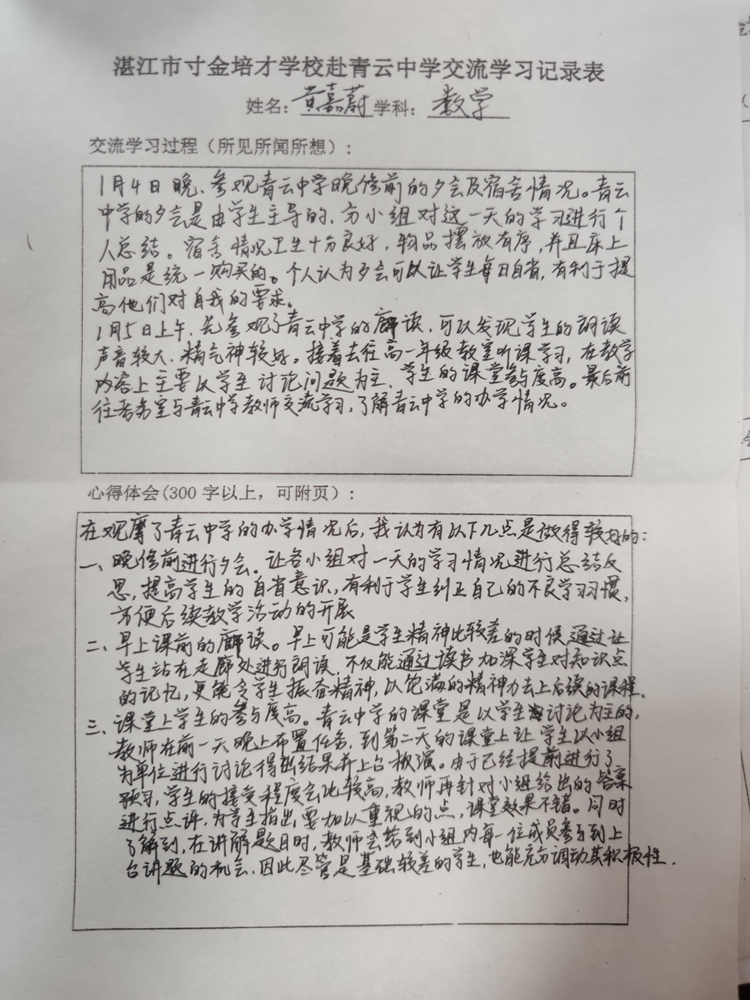 湛江市寸金培才学校赴青云中学交流学习记录表
姓名：黄嘉蔚 学科：数学
交流学习过程（所见所闻所想）：
1月4日晚、参观青云中学晚修前的夕会及宿舍情况。青云
中学的夕会是由学生主导的、分小组对这一天的学习进行个
人总结。宿舍情况卫生十分良好，物品摆放有序，并且床上
用品是统一购买的。个人认为夕会可以让学生每日自省，有利于提
高他们对自我的要求。
1月5日上午，先参观了青云中学的廊读，可以发现学生的朗读
声音较大、精气神较好。接着去往高一年级教室听课学习，在教学
内容上主要以学生讨论问题为主、学生的课堂参与度高。最后前
往会务室与青云中学教师交流学习，了解青云中学的办学情况。
心得体会(300字以上，可附页）：
在观摩了青云中学的办学情况后，我认为有以下几点是做得较好的：
一、晚修前进行夕会。让各小组对一天的学习情况进行总结反
思，提高学生的自省意识，有利于学生纠正自己的不良学习习惯，
方便后续教学活动的开展
二、早上课前的廊读。早上可能是学生精神比较差的时候，通过让
学生站在走廊处进行朗读，不仅能通过读书加深学生对知识点
的记忆，更能令学生振奋精神，以饱满的精神力去上后续的课程。
三、课堂上学生的参与度高。青云中学的课堂是以学生讨论为主的，
教师在前一天晚上布置任务，到第二天的课堂上让学生以小组
为单位进行讨论得出结果并上台板演。由于已经提前进行了
预习，学生的接受程度会比较高，教师再针对小组给出的答案
进行点讲，为学生指出要加以重视的点，课堂效果不错。同时
了解到，在讲解题目时，教师会给到小组内每一位成员参与到上
台讲题的机会，因此尽管是基础较差的学生，也能充分调动其积极性。